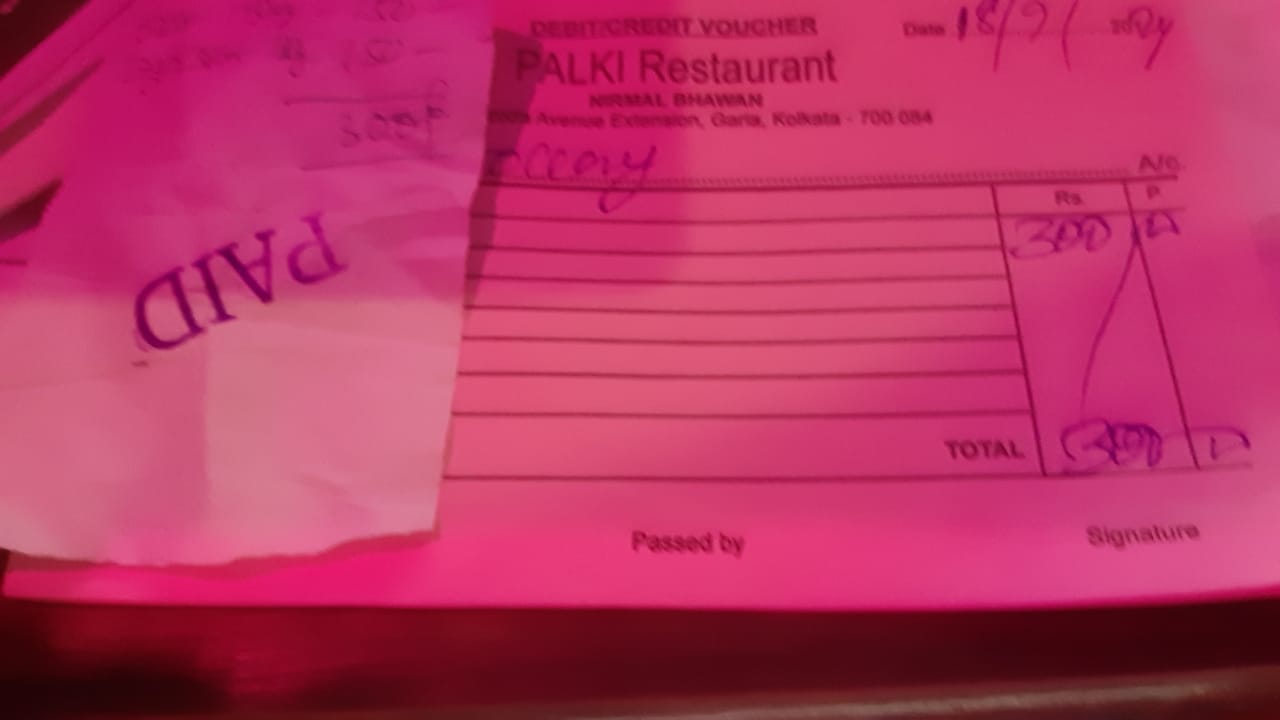 DEBIT/CREDIT VOUCHER
Date 18/9/ 2024
PALKI Restaurant
NIRMAL BHAWAN
Avenue Extension, Garia, Kolkata - 700 084
A/c.
Rs. P.
300
TOTAL 300
Passed by
Signature
150 -
300/-
PAID